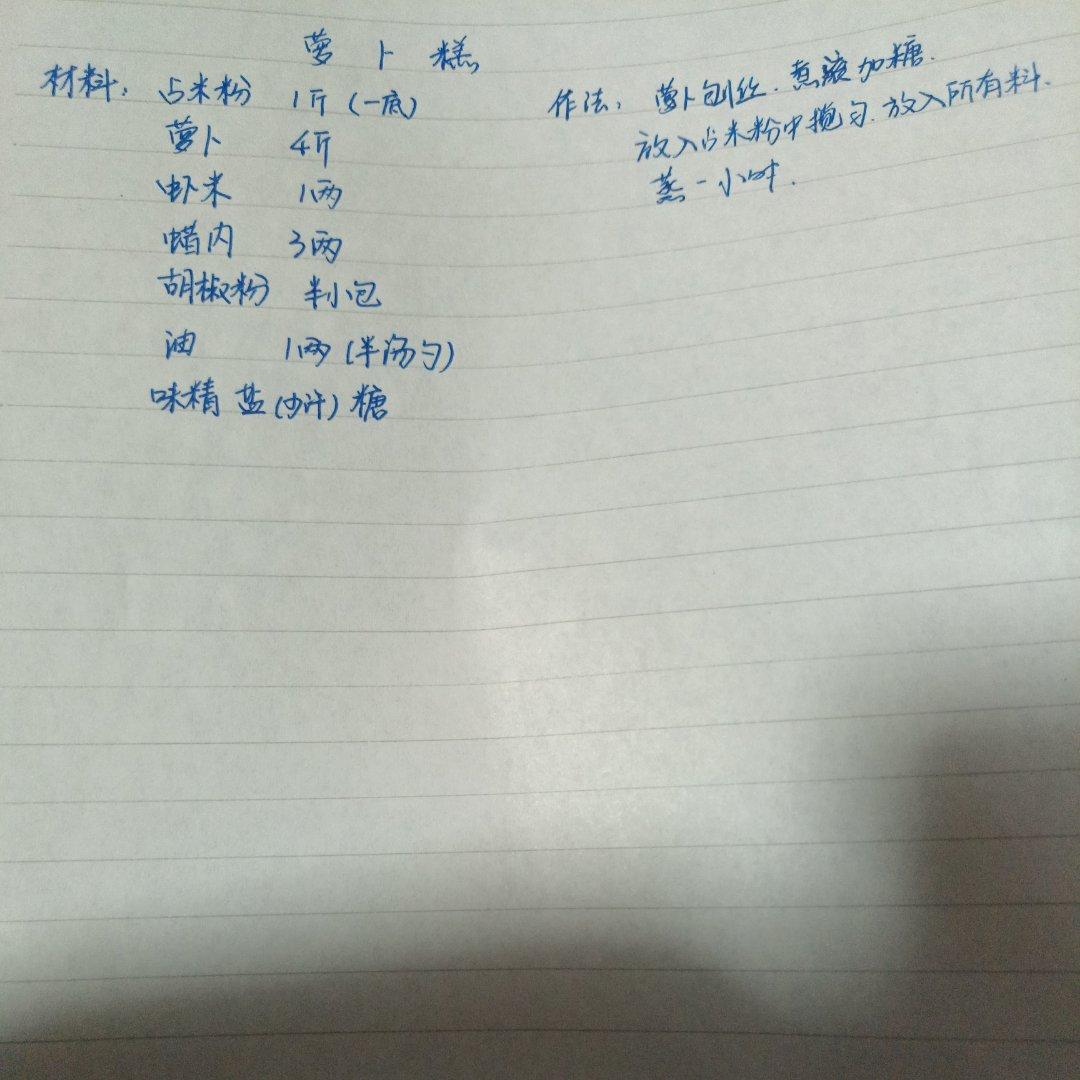 萝卜糕
材料: 占米粉 1斤 (一底)
萝卜 4斤
虾米 1两
蜡肉 3两
胡椒粉 半小包
油 1两 (半汤勺)
味精 盐 (少许) 糖
作法: 萝卜刨丝. 煮滚加糖.
放入占米粉中搅匀. 放入所有料.
蒸一小时.